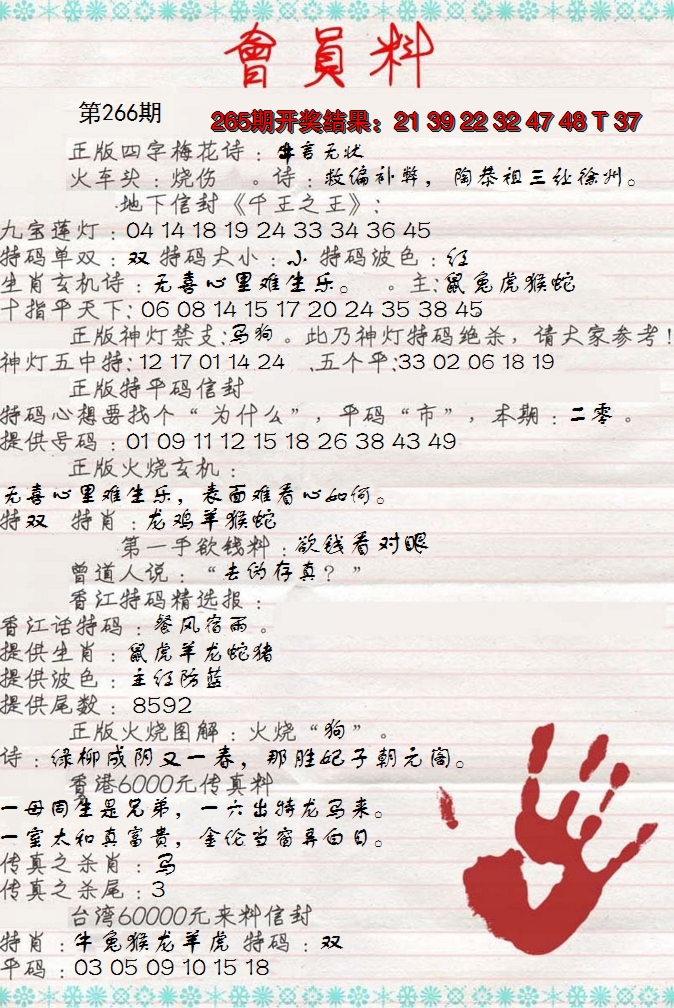 會員料
第266期
265期开奖结果：21 39 22 32 47 48 T 37
正版四字梅花诗：言无状
火车头：烧伤 。诗：救偏补弊，陶恭祖三让徐州。
地下信封《千王之王》：
九宝莲灯：04 14 18 19 24 33 34 36 45
特码单双：双 特码大小：小 特码波色：红
生肖玄机诗：无喜心里难生乐。 。主：鼠兔虎猴蛇
十指平天下：06 08 14 15 17 20 24 35 38 45
正版神灯禁支：马狗。此乃神灯特码绝杀，请大家参考！
神灯五中特：12 17 01 14 24 .五个平：33 02 06 18 19
正版特平码信封
特码心想要找个“为什么”，平码“市”，本期：二零。
提供号码：01 09 11 12 15 18 26 38 43 49
正版火烧玄机：
无喜心里难生乐，表面难看心如何。
特双 特肖：龙鸡羊猴蛇
第一手欲钱料：欲钱看对眼
曾道人说：“去伪存真？”
香江特码精选报：
香江话特码：餐风宿雨。
提供生肖：鼠虎羊龙蛇猪
提供波色：主红防蓝
提供尾数：8592
正版火烧图解：火烧“狗”。
诗：绿柳成阴又一春，那胜妃子朝元阁。
香港6000元传真料
一母同生是兄弟，一六出特龙马来。
一室太和真富贵，金伦当窗弄白日。
传真之杀肖：马
传真之杀尾：3
台湾60000元来料信封
特肖：牛兔猴龙羊虎 特码：双
平码：03 05 09 10 15 18